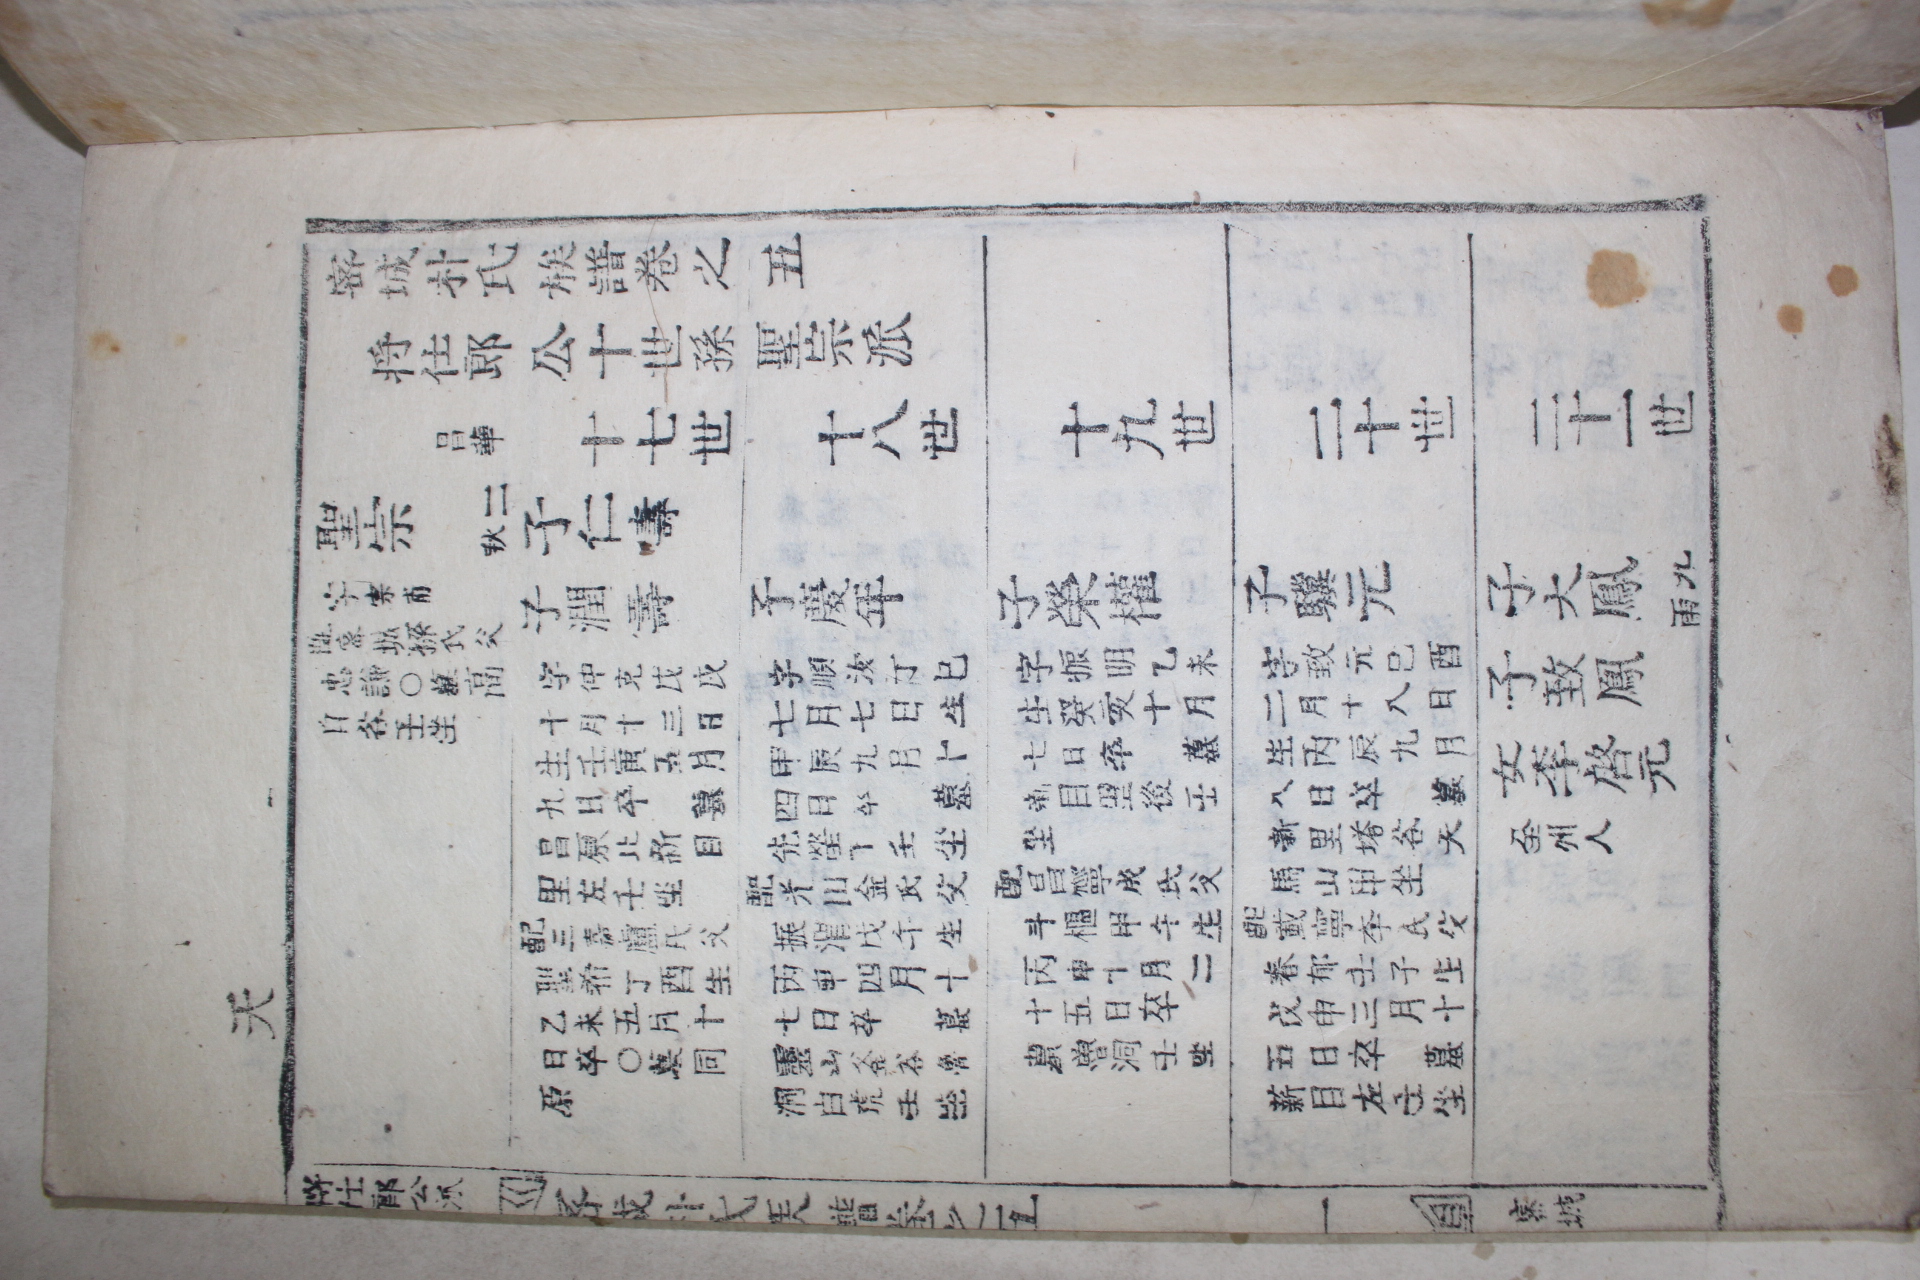 天
密城朴氏族譜卷之五
將仕郎公十世孫聖宗派
昌華
十七世
十八世
十九世
二十世
二十一世
聖宗
字宗甫
配密城孫氏父
忠謙○墓高
自谷壬坐
子仁壽
二
秋
子潤壽
字仲克戊戌
十月十三日
生壬寅五月
九日卒 墓
昌原北新目
里左壬坐
配三嘉盧氏父
聖希丁酉生
乙未五月十
日卒○墓同
原
子慶年
字順汝丁巳
七月七日生
甲辰九月十
四日卒 墓
先塋下壬坐
配光州金氏父
振渭戊午生
丙申四月十
七日卒 墓
靈山釜谷魯
洞白虎壬坐
子榮權
字振明乙未
生癸亥十月
七日卒 墓
新目里後壬
坐
配昌寧成氏父
斗樞甲午生
丙申十月二
十五日卒
墓魯洞壬坐
子驥元
字致元己酉
二月十八日
生丙辰九月
八日卒 墓
新里塔谷天
馬山甲坐
配載寧李氏父
春郁壬子生
戊申三月十
五日卒 墓
新目左壬坐
子大鳳
九
雨
子致鳳
女李啓元
全州人
將仕郎公派
密城朴氏族譜卷之五
一
密城